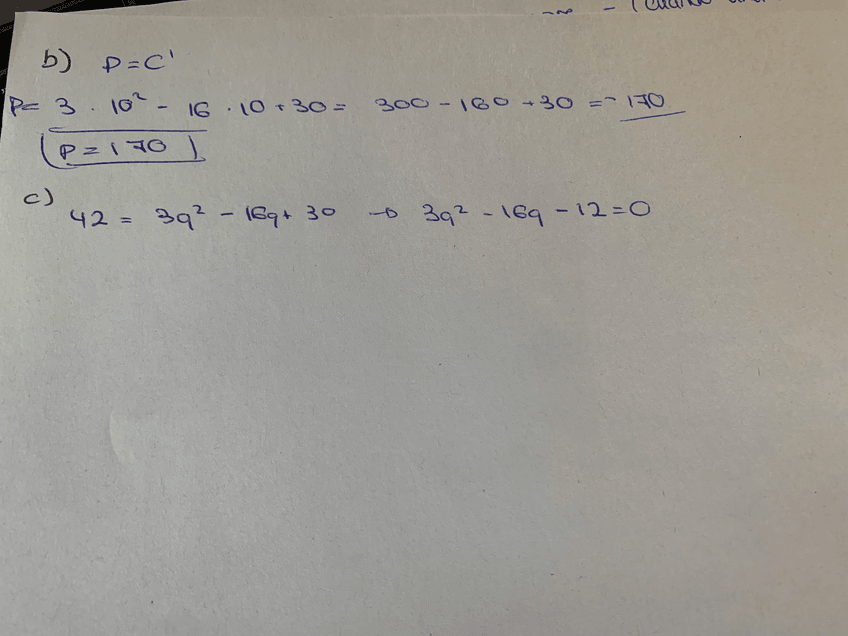 b) P=C'
P= 3 · 10² - 16 · 10 + 30 = 300 - 160 + 30 = 170
P = 170
c)
42 = 3q² - 16q + 30 → 3q² - 16q - 12 = 0